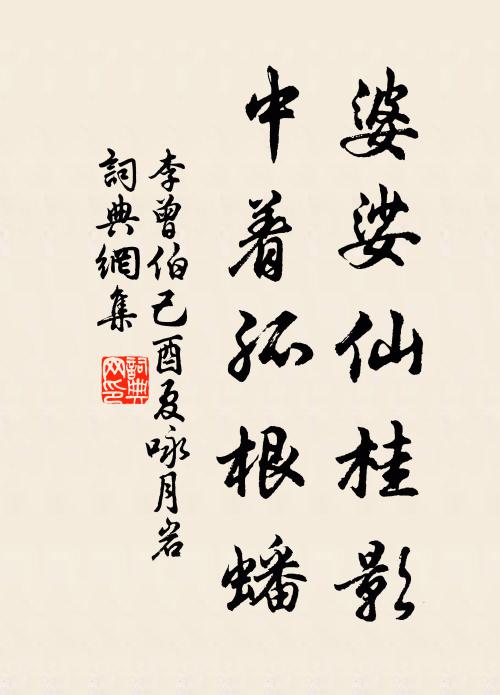 婆娑仙桂影
中着孤根蟠
李曾伯己酉夏咏月岩
詞典網集
詞典網印